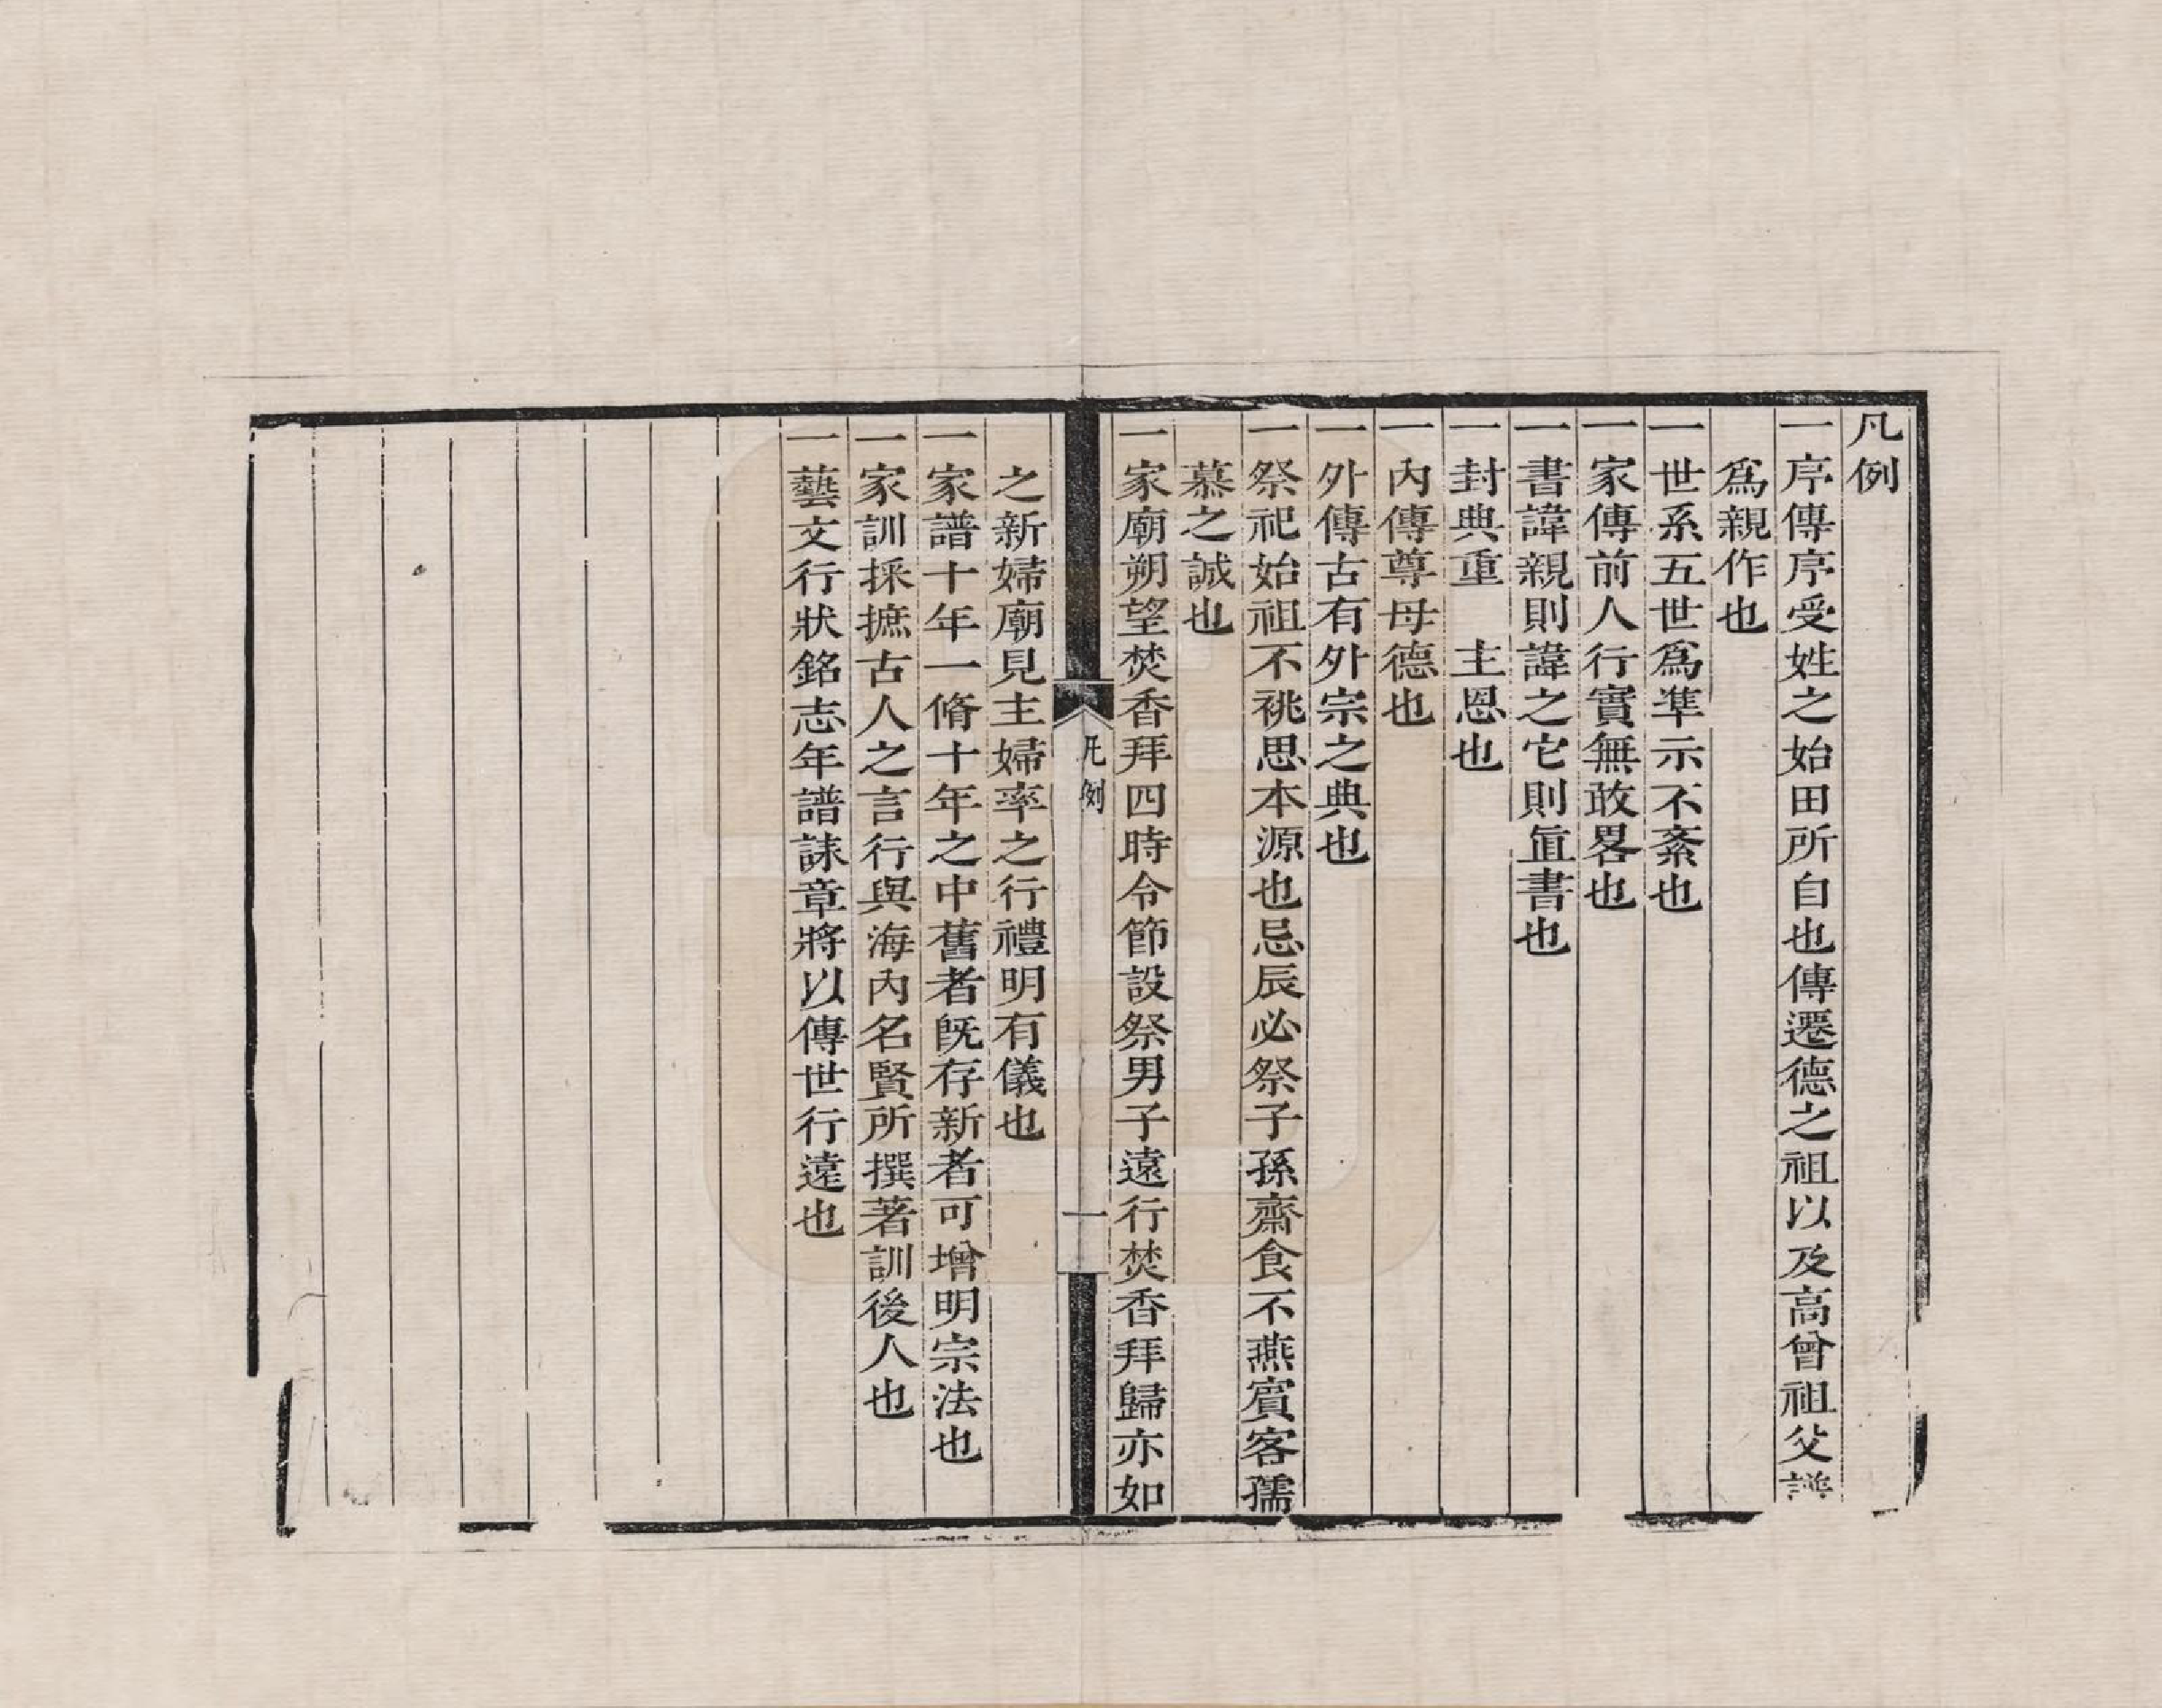 凡例
一序傳序受姓之始田所自也傳遷德之祖以及高曾祖父譜
爲親作也
一世系五世爲準示不紊也
一家傳前人行實無敢畧也
一書諱親則諱之它則直書也
一封典重　主恩也
一內傳尊母德也
一外傳古有外宗之典也
一祭祀始祖不祧思本源也忌辰必祭子孫齋食不燕賓客孺
慕之誠也
一家廟朔望焚香拜四時令節設祭男子遠行焚香拜歸亦如
凡例
一
之新婦廟見主婦率之行禮明有儀也
一家譜十年一脩十年之中舊者旣存新者可增明宗法也
一家訓採摭古人之言行與海內名賢所撰著訓後人也
一藝文行狀銘志年譜誄章將以傳世行遠也